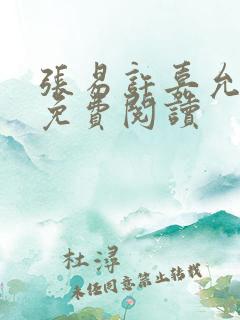 張易許嘉允
免費閱讀
杜潯
未经同意禁止转载